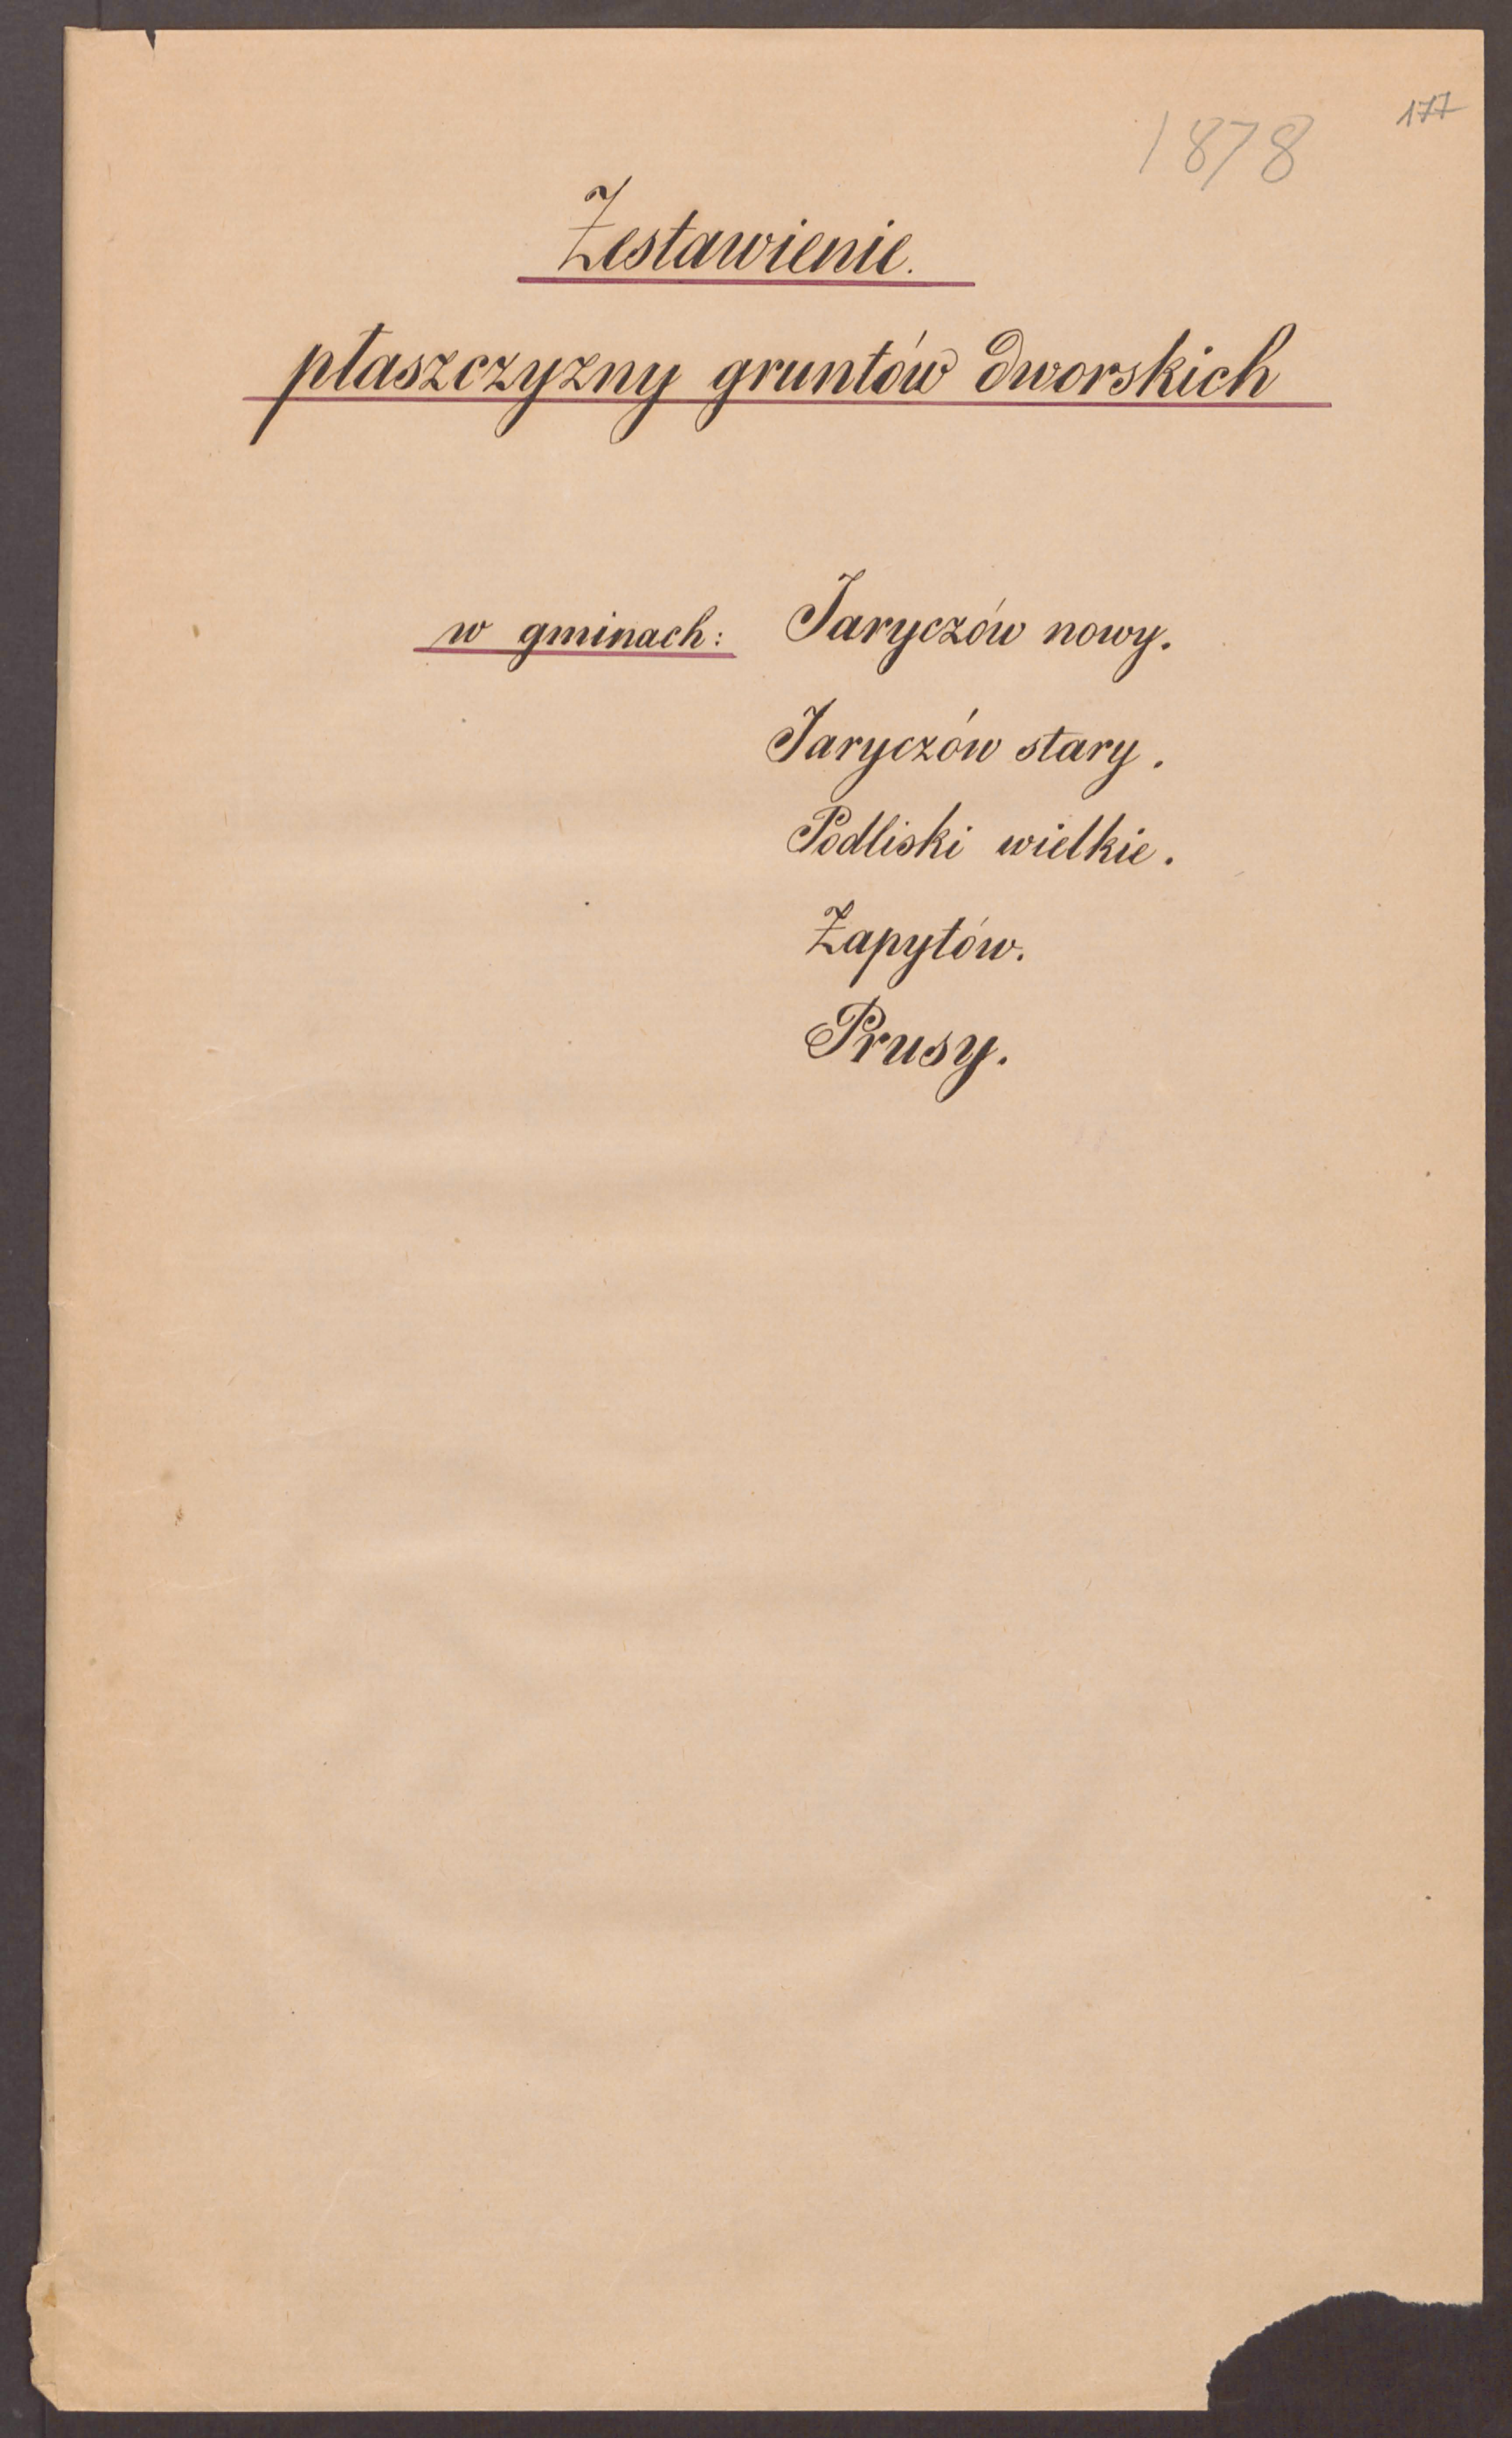 177
1878
Zestawienie.
płaszczyzny gruntów dworskich
w gminach: Jaryczów nowy.
Jaryczów stary.
Podliski wielkie.
Zapytów.
Prusy.